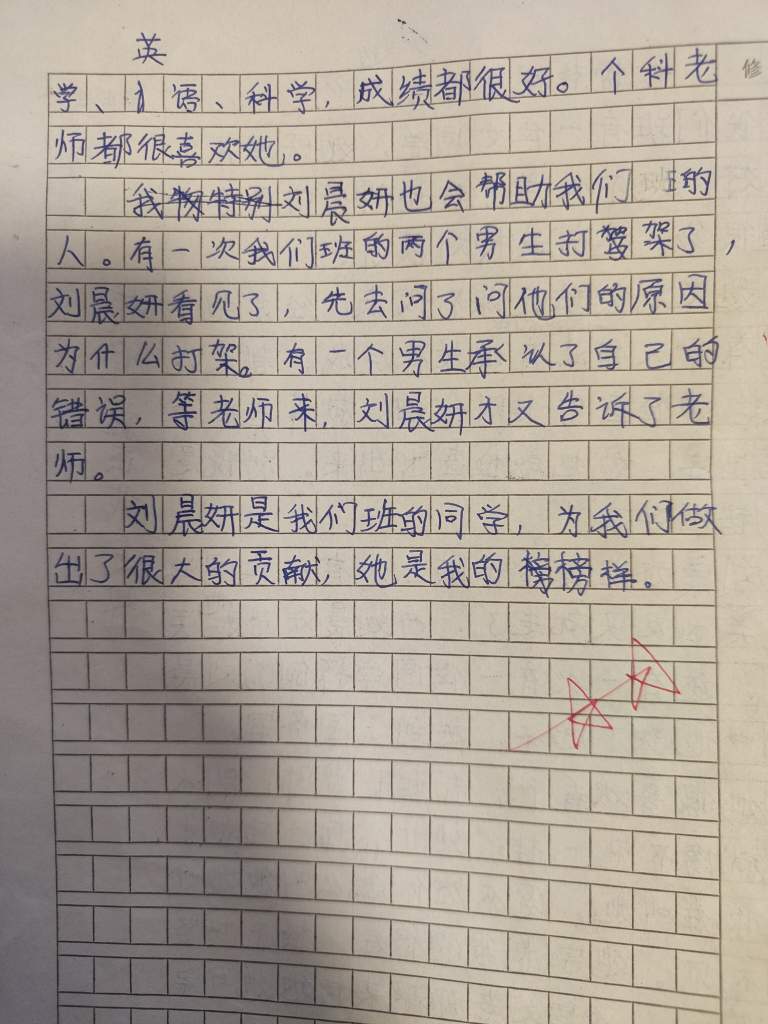 英
学、语、科学，成绩都很好。个科老
师都很喜欢她。
我物特别刘晨妍也会帮助我们班的
人。有一次我们班的两个男生打驾架了，
刘晨妍看见了，先去问了问他们的原因
为什么打架。有一个男生承认了自己的
错误，等老师来，刘晨妍才又告诉了老
师。
刘晨妍是我们班的同学，为我们做
出了很大的贡献，她是我的榜榜样。
修